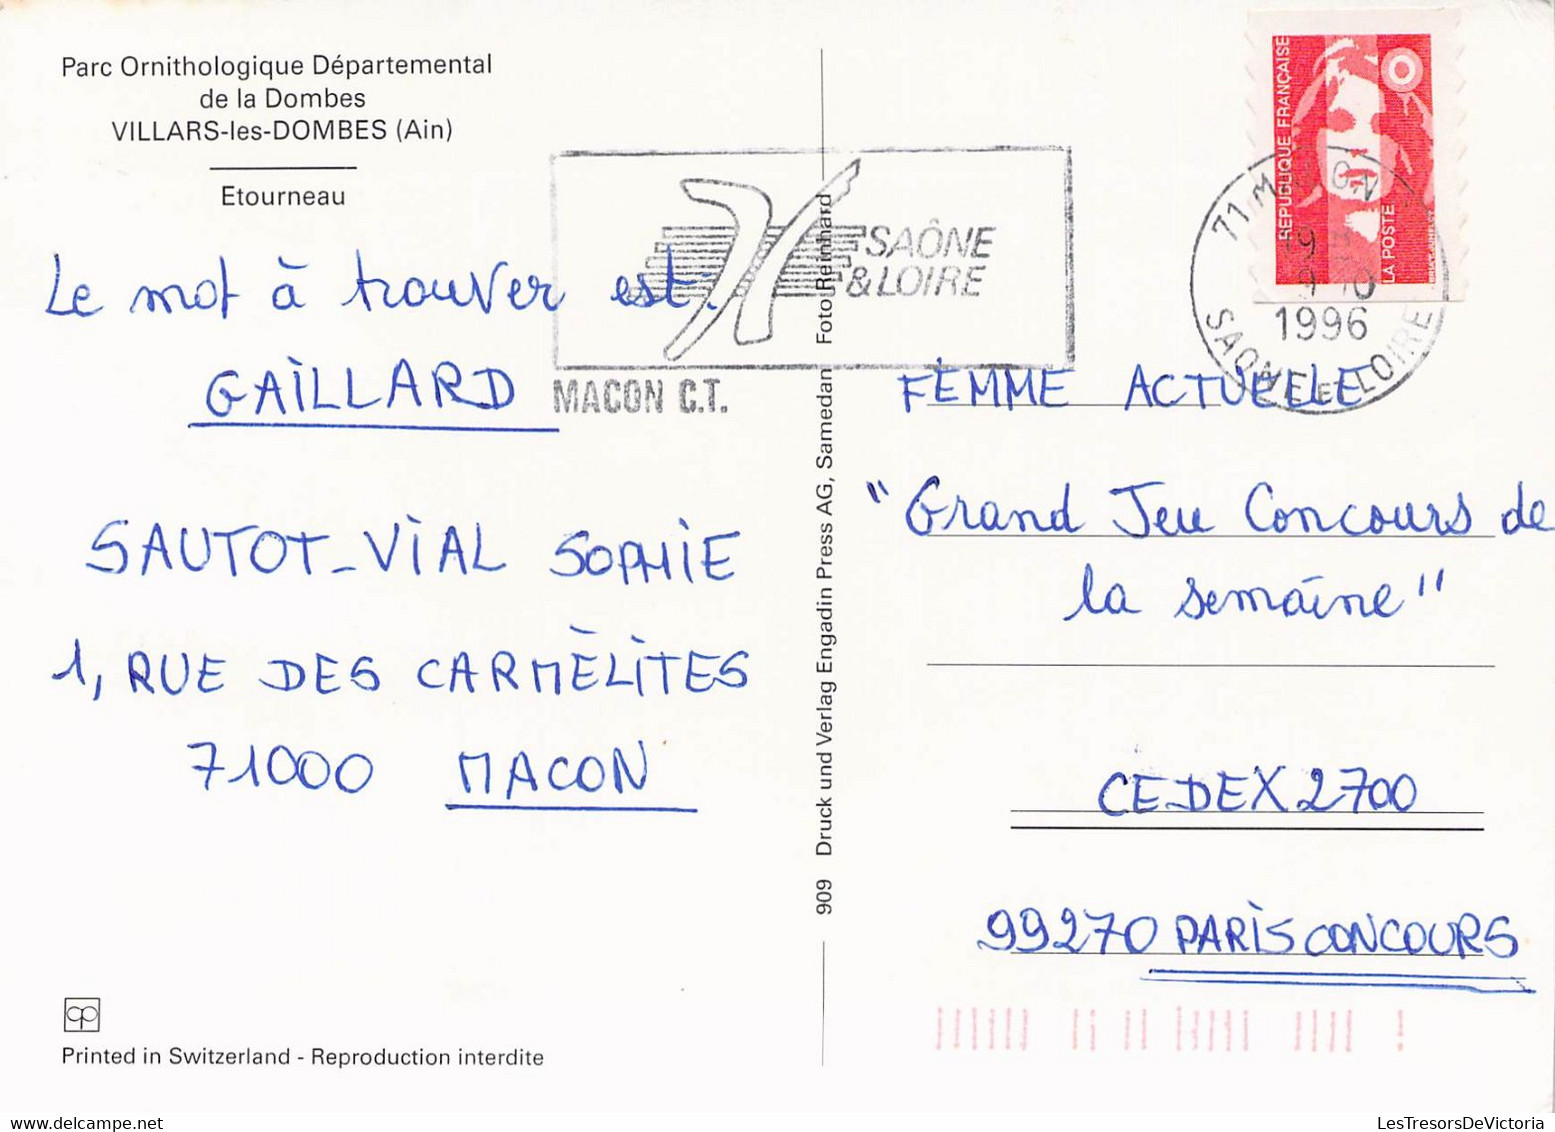 Parc Ornithologique Départemental
de la Dombes
VILLARS-les-DOMBES (Ain)
Etourneau
Le mot à trouver est:
GAILLARD
SAUTOT-VIAL SOPHIE
1, RUE DES CARMÈLITES
71000 MACON
Printed in Switzerland - Reproduction interdite
SAÔNE
& LOIRE
MACON C.T.
909 Druck und Verlag Engadin Press AG, Samedan Foto Reinhard
REPUBLIQUE FRANÇAISE
LA POSTE
1996
SAONE ET LOIRE
FEMME ACTUELLE
"Grand Jeu Concours de
la semaine"
CEDEX 2700
99270 PARIS CONCOURS
LesTresorsDeVictoria